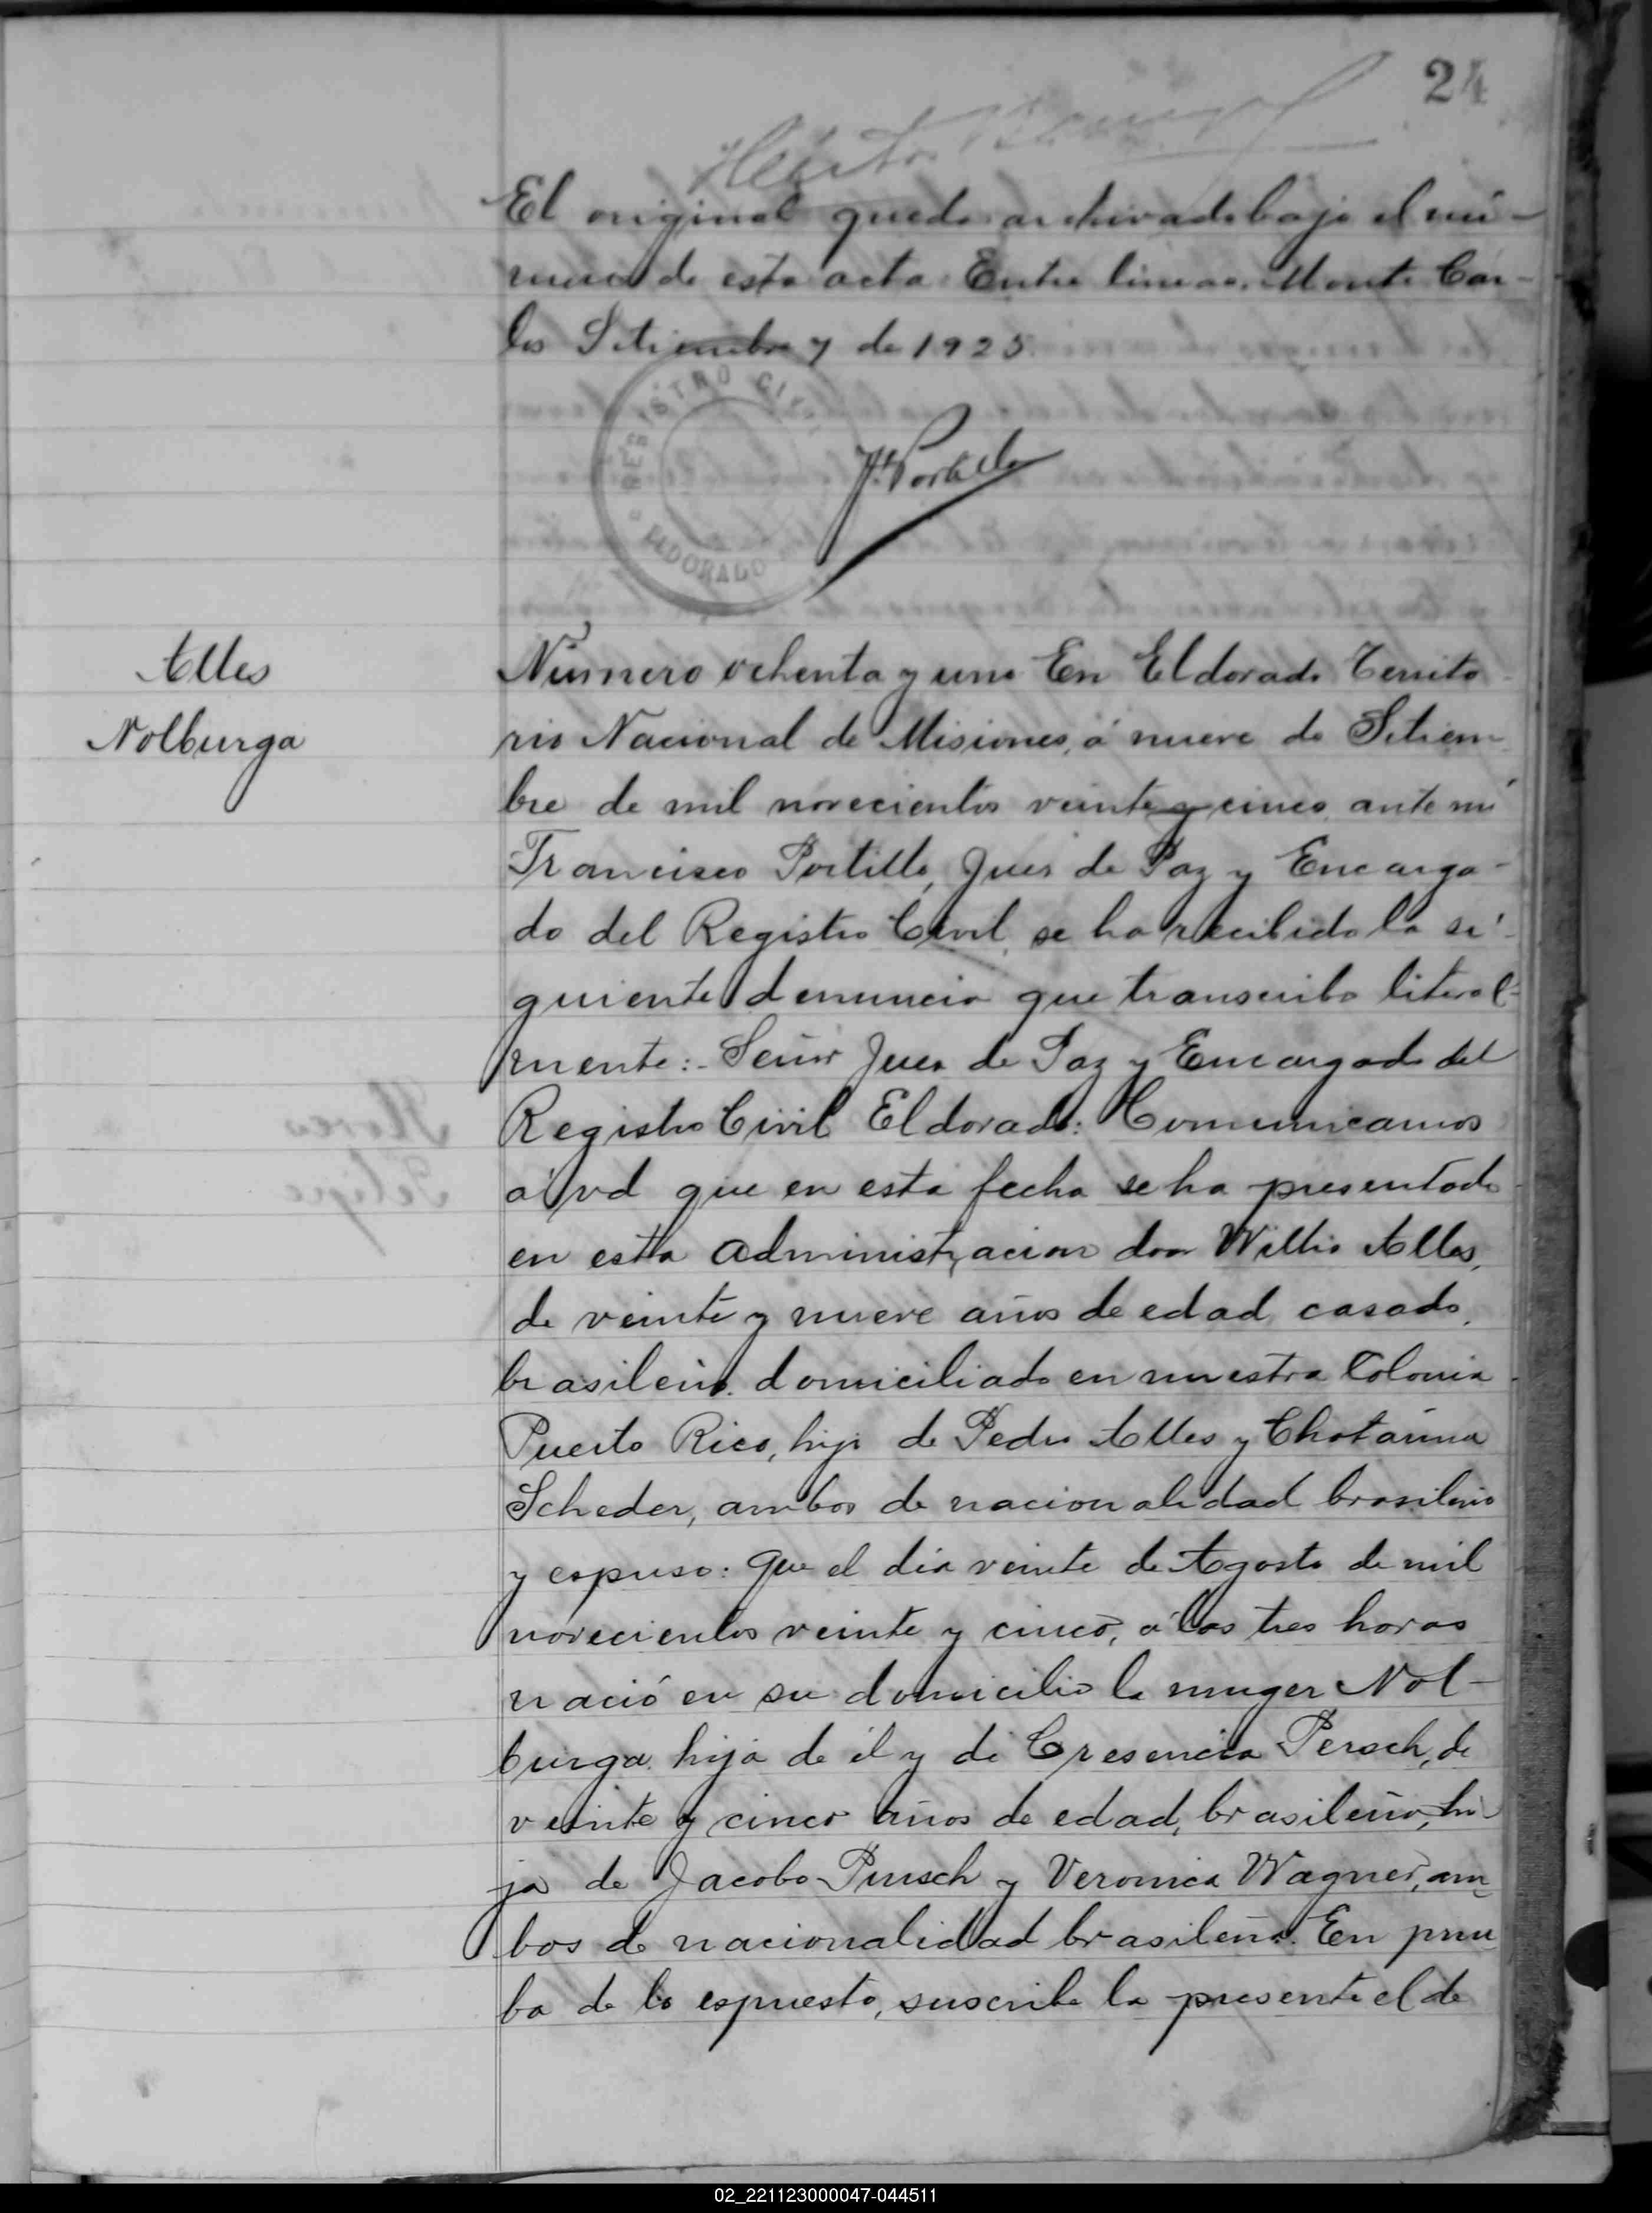 24
El original queda archivado bajo el nú-
mero de esta acta. Entre lineas. Monte Car-
los Setiembre 7 de 1925.
REGISTRO CIVIL
ELDORADO
F. Portillo
Alles
Nolburga
Número ochenta y uno En Eldorado Territo-
rio Nacional de Misiones, á nueve de Setiem-
bre de mil novecientos veinte y cinco, ante mi
Francisco Portillo, Juez de Paz y Encarga-
do del Registro Civil, se ha recibido la si-
guiente denuncia que transcribo literal-
mente:- Señor Juez de Paz y Encargado del
Registro Civil Eldorado: Comunicamos
á vd que en esta fecha se ha presentado
en esta administracion don Willis Alles,
de veinte y nueve años de edad casado,
brasileño, domiciliado en nuestra Colonia
Puerto Rico, hijo de Pedro Alles y Chatarina
Scheder, ambos de nacionalidad brasileño
y espuso: Que el dia veinte de Agosto de mil
novecientos veinte y cinco, á las tres horas
nació en su domicilio la muger Nol-
burga hija de él y de Cresencia Persch, de
veinte y cinco años de edad, brasileño, hi-
ja de Jacobo Persch y Veronica Wagner, am-
bos de nacionalidad brasileña. En prue-
ba de lo espuesto, suscribe la presente el de
02_221123000047-044511